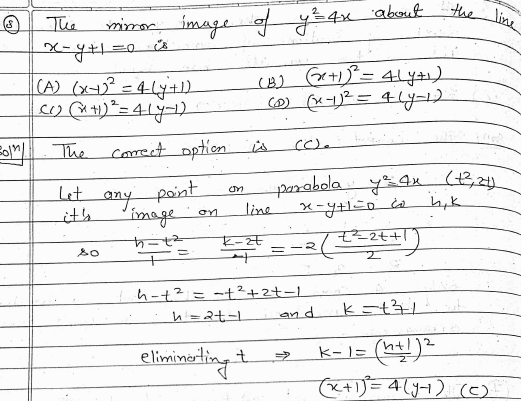 ⑧ The mirror image of y²=4x about the line
x-y+1=0 is
(A) (x-1)² = 4(y+1) (B) (x+1)² = 4(y+1)
(C) (x+1)² = 4(y-1) (D) (x-1)² = 4(y-1)
Soln The correct option is (C).
Let any point on parabola y²=4x (t², 2t)
it's image on line x-y+1=0 is h, k
so (h-t²)/1 = (k-2t)/-1 = -2((t²-2t+1)/2)
h-t² = -t²+2t-1
h = 2t-1 and k = t²+1
eliminating t ⇒ k-1 = ((h+1)/2)²
(x+1)² = 4(y-1) (C)